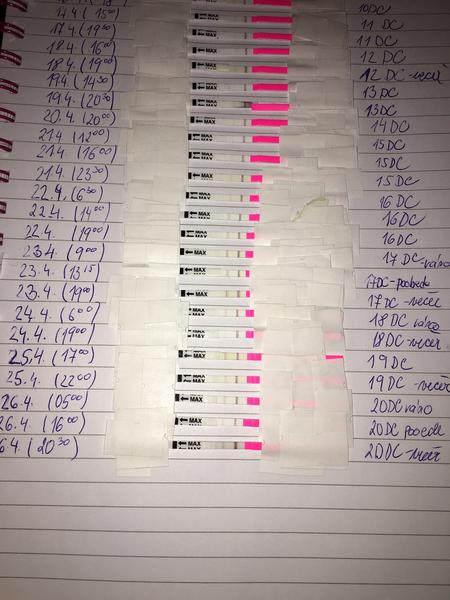 10DC
14.4. (15⁰⁰) MAX 11 DC
17.4. (19⁰⁰) MAX 11 DC
18.4. (16⁰⁰) MAX 12 DC
18.4. (19⁰⁰) MAX 12 DC-večer
19.4. (14³⁰) MAX 13 DC
19.4. (20³⁰) MAX 13DC
20.4. (20⁰⁰) MAX 14DC
21.4. (12⁰⁰) MAX 15DC
21.4. (16⁰⁰) MAX 15DC
21.4. (23³⁰) MAX 15DC
22.4. (6³⁰) MAX 16 DC
22.4. (14⁰⁰) MAX 16DC
22.4. (19⁰⁰) MAX 16DC
23.4. (9⁰⁰) MAX 17 DC-ráno
23.4. (13¹⁵) MAX 17DC-poobede
23.4. (19⁰⁰) MAX 17DC-večer
24.4. (6⁰⁰) MAX 18DC ráno
24.4. (19⁰⁰) MAX 18DC-večer
25.4. (17⁰⁰) MAX 19DC
25.4. (22⁰⁰) MAX 19DC-večer
26.4. (05⁰⁰) MAX 20DC ráno
26.4. (16⁰⁰) MAX 20DC poobede
6.4. (20³⁰) MAX 20DC-večer